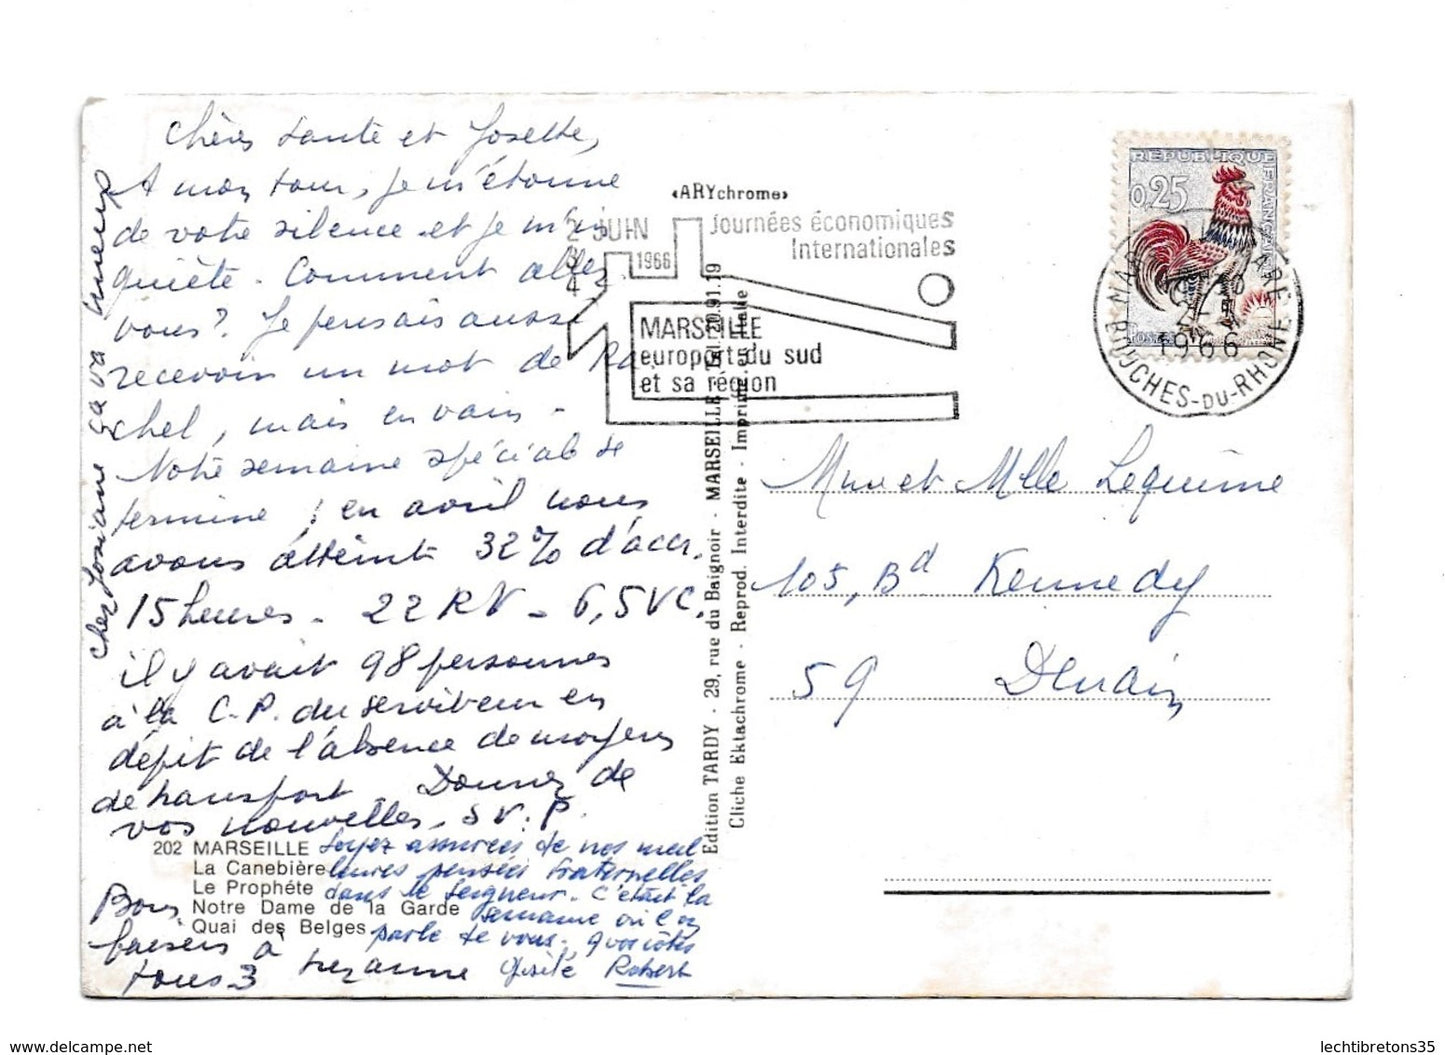 Chères tante et Josette,
A mon tour, je m'étonne
de votre silence et je m'in
quiète. Comment allez
vous? Je pensais aussi
recevoir un mot de Ra
chel, mais en vain.
Notre semaine spéciale se
termine ; en avril nous
avons atteint 32% d'accr.
15 heures - 22 RV - 6,5 VC.
il y avait 98 personnes
à la C.P. du serviteur en
dépit de l'absence de moyens
de transport. Donnez de
vos nouvelles, S.V.P.
Soyez assurées de nos meil
leures pensées fraternelles
dans le Seigneur. C'était la
semaine où l'on
parle de vous,
Robert
Bons
baisers à
tous 3 Suzanne
chez Josiane ça va mieux
202 MARSEILLE
La Canebière
Le Prophéte
Notre Dame de la Garde
Quai des Belges
Edition TARDY - 29, rue du Baignoir - MARSEILLE - Tél. 20.91.19
Cliche Ektachrome - Reprod. Interdite - Imprimé en Italie
«ARYchrome»
2 3 4 JUIN
1966
Journées économiques
Internationales
MARSEILLE
europort du sud
et sa région
REPUBLIQUE FRANCAISE
0,25
POSTES
MARSEILLE GARE
1966
BOUCHES-DU-RHONE
Mme et Mlle Lequime
105, Bd Kennedy
59 Denain
lechtibretons35
delcampe.net